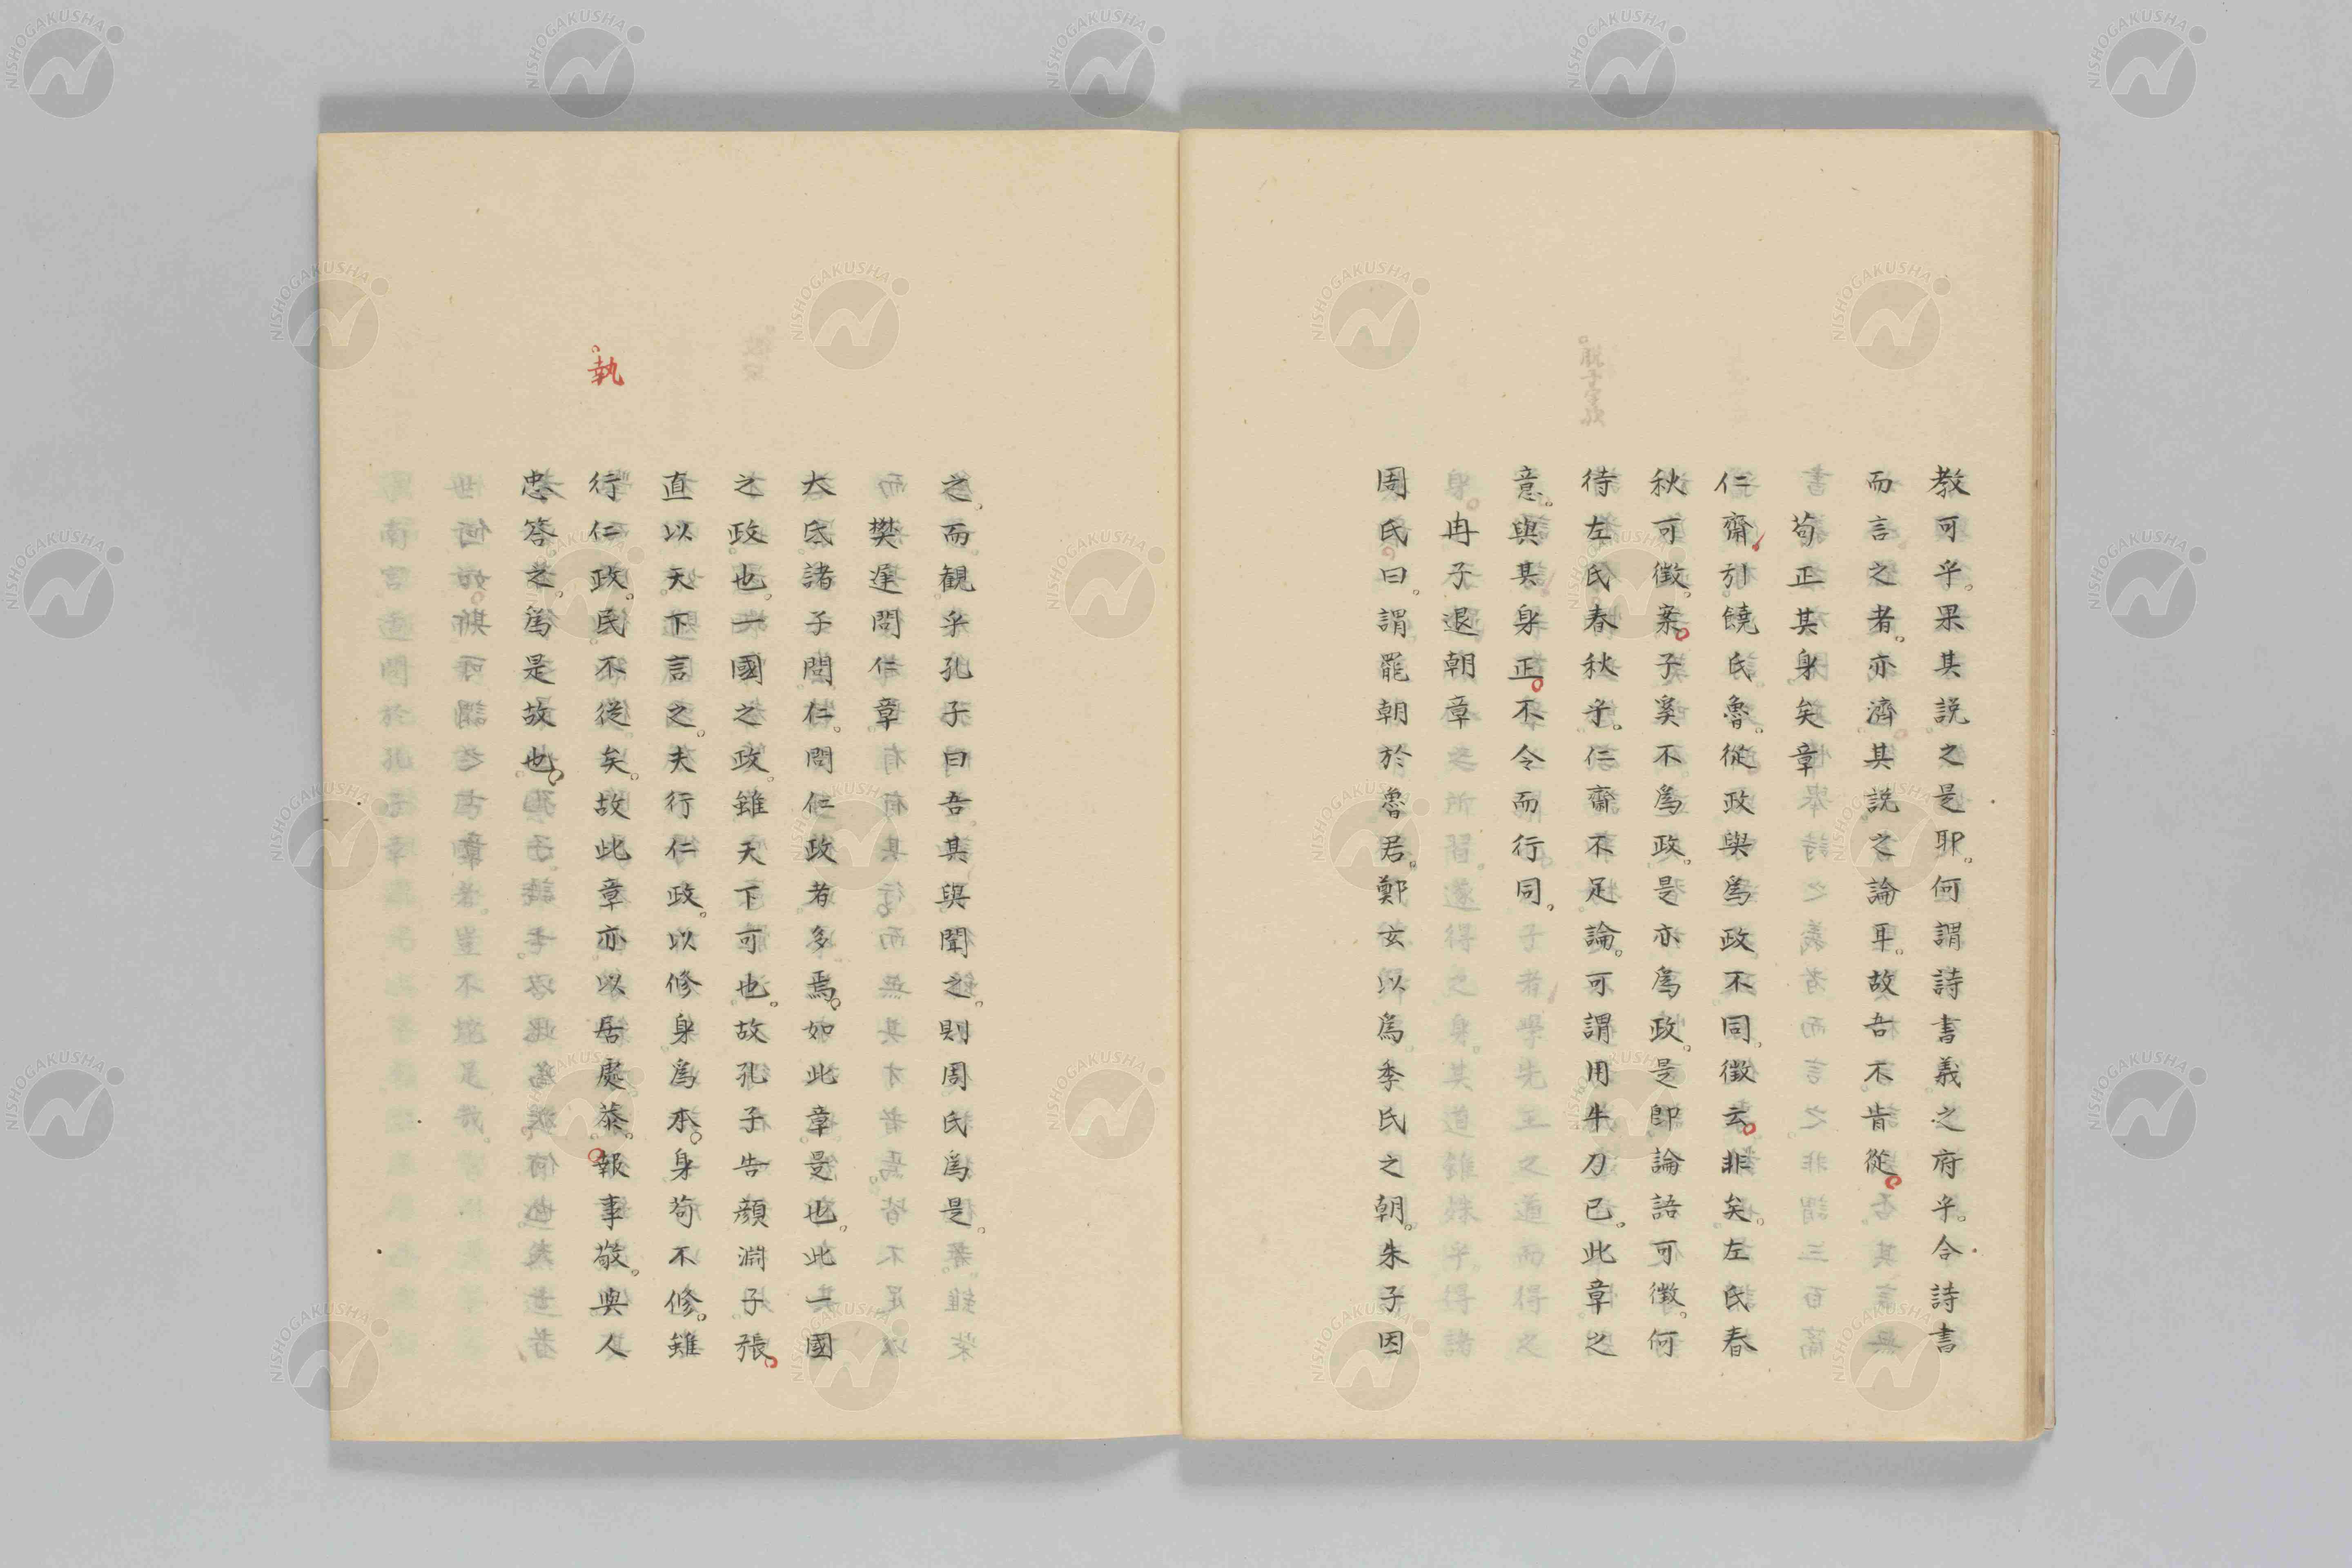 教可乎。果其説之是耶。何謂詩書義之府乎。合詩書
而言之者。亦濟其説之論耳。故吾不肯從。
苟正其身矣章
仁齋引饒氏魯。從政與爲政不同。徴云。非矣。左氏春
秋可徴。案。子奚不爲政。是亦爲政。是即論語可徴。何
待左氏春秋乎。仁齋不足論。可謂用牛刀已。此章之
意。與其身正。不令而行同。
冉子退朝章
周氏曰。謂罷朝於魯君。鄭玄以爲季氏之朝。朱子因
之。而観乎孔子曰吾其與聞之。則周氏爲是。
樊遲問仁章
大氐諸子問仁。問仁政者多焉。如此章是也。此一國
之政也。一國之政。雖天下可也。故孔子告顔淵子張。
直以天下言之。夫行仁政。以修身爲本。身苟不修。雖
行仁政。民不從矣。故此章亦以居處恭。報事敬。與人
忠答之。爲是故也。
執
NISHOGAKUSHA